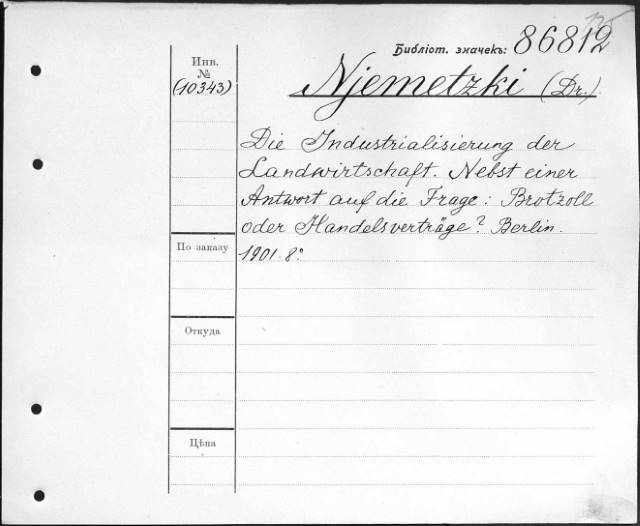 Библіот. значекъ: 86812
Инв.
№
(10343)
Njemetzki (Dr.).
Die Industrialisierung der
Landwirtschaft. Nebst einer
Antwort auf die Frage: Brotzoll
oder Handelsverträge? Berlin.
1901. 8°.
По заказу
Откуда
Цѣна